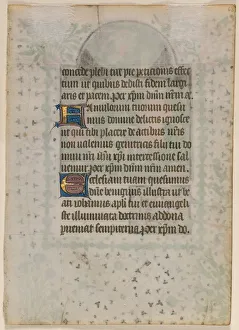 concede plebi tue pie peticionis effec
tum ut quibus dedisti fidem largi
aris et pacem. per xpm dnm nrm. a.
Famulorum tuorum quesu
mus domine delictis ignosce
ut qui tibi placere de actibus nris
non valemus genitricis filii tui do
mini nri ihu xpi intercessione sal
vemur. per xpm dnm nrm.
Ecclesiam tuam quesumus
dne benignus illustra ut be
ati iohannis apli tui et euuangeli
ste illuminata doctrinis ad dona
perveniat sempiterna. per xpm do.